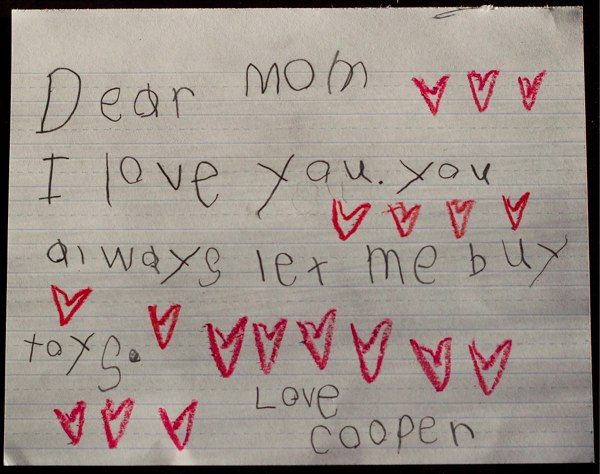 Dear mom
I love you. you
always let me buy
toys.
Love
cooper